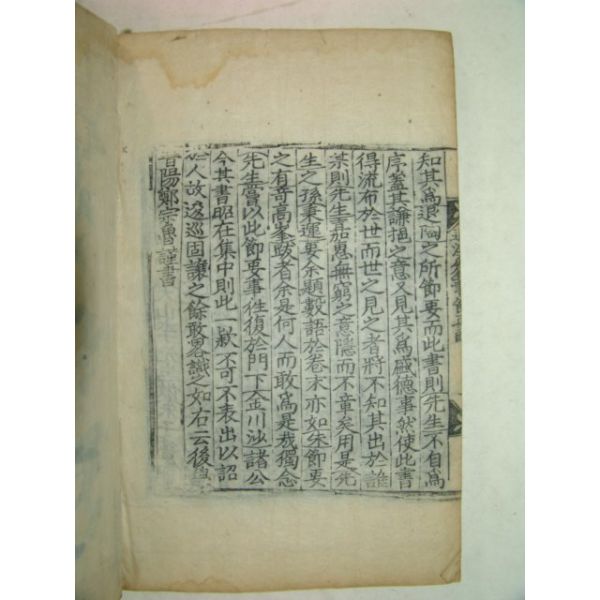 知其爲退陶之所節要而此書則先生不自爲
序盖其謙挹之意又見其爲盛德事然使此書
得流布於世而世之見之者將不知其出於誰
某則先生嘉惠無窮之意隱而不章矣用是先
生之孫秉運要余題數語於卷末亦如朱節要
之有奇高峯跋者余是何人而敢爲是哉獨念
先生嘗以此節要事往復於門下金川沙諸公
今其書昭在集中則此一欵不可不表出以詔
後人故逡巡固讓之餘敢畧識之如右云後學
晉陽鄭宗魯謹書